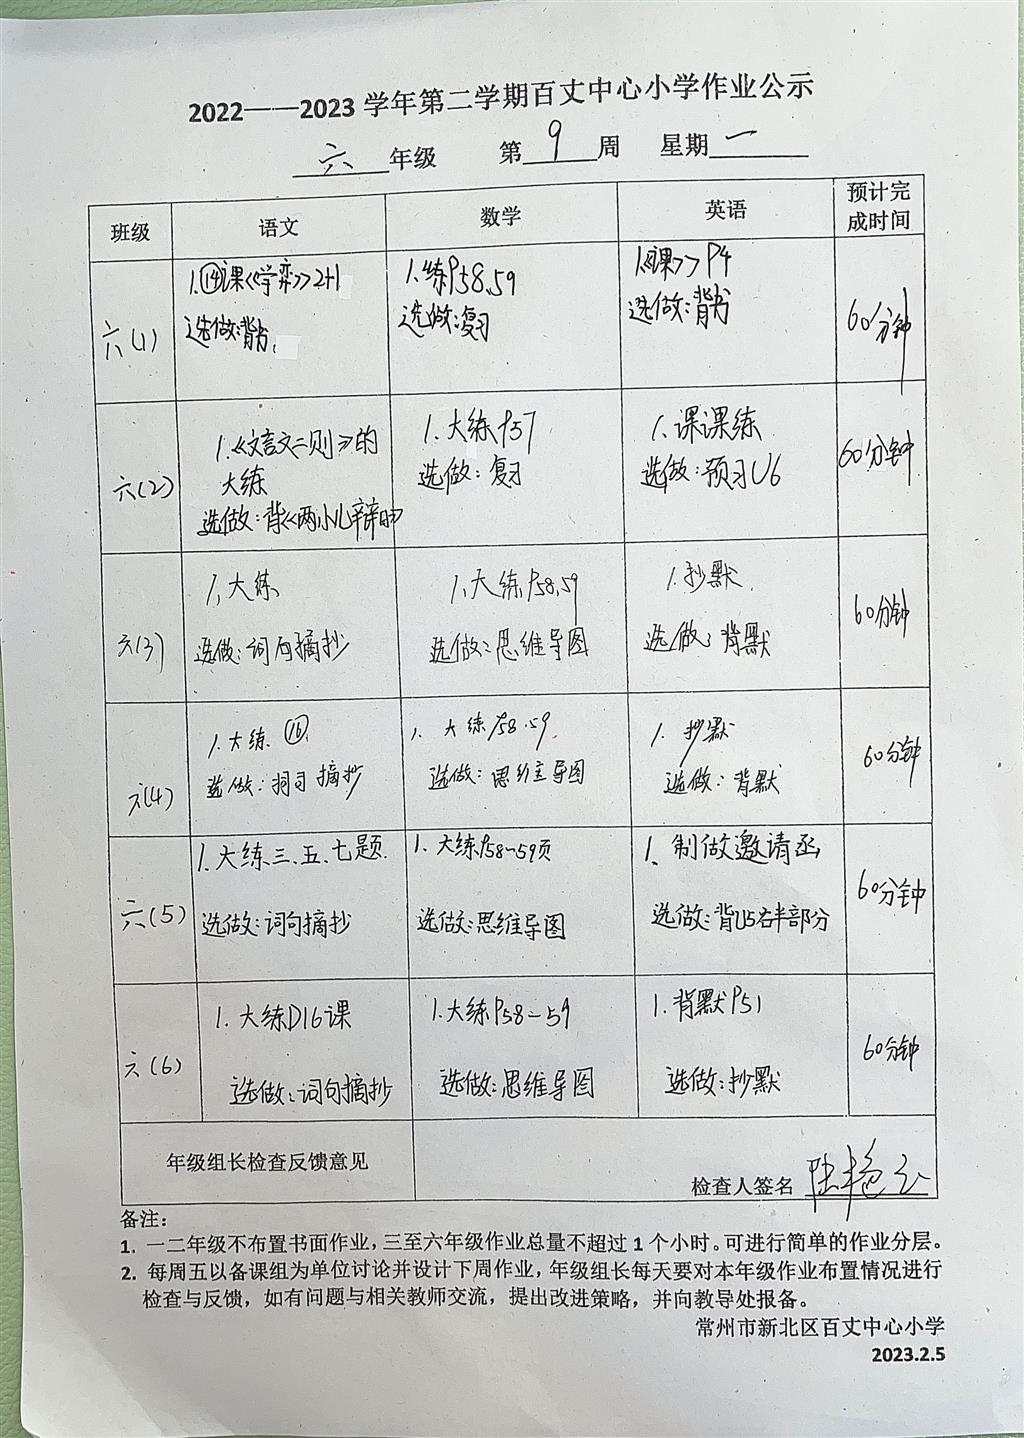 2022——2023 学年第二学期百丈中心小学作业公示
六 年级 第 9 周 星期 一
班级 语文 数学 英语 预计完成时间
六(1)
1.⑭课《学弈》2+1
选做:背书
1.练P58、59
选做:复习
1.《课》P4
选做:背书
60分钟
六(2)
1.《文言文二则》的
大练
选做:背《两小儿辩日》
1.大练P57
选做:复习
1.课课练
选做:预习U6
60分钟
六(3)
1、大练
选做:词句摘抄
1、大练P58、59
选做:思维导图
1.抄默
选做:背默
60分钟
六(4)
1.大练 ⑯
选做: 摘抄
1、大练P58.59
选做:思维导图
1.抄默
选做:背默
60分钟
六(5)
1.大练三、五、七题
选做:词句摘抄
1.大练P58~59页
选做:思维导图
1、制做邀请函
选做:背U5右半部分
60分钟
六(6)
1.大练D16课
选做:词句摘抄
1.大练P58-59
选做:思维导图
1.背默P51
选做:抄默
60分钟
年级组长检查反馈意见
检查人签名
备注:
1. 一二年级不布置书面作业,三至六年级作业总量不超过 1 个小时。可进行简单的作业分层。
2. 每周五以备课组为单位讨论并设计下周作业,年级组长每天要对本年级作业布置情况进行
检查与反馈,如有问题与相关教师交流,提出改进策略,并向教导处报备。
常州市新北区百丈中心小学
2023.2.5